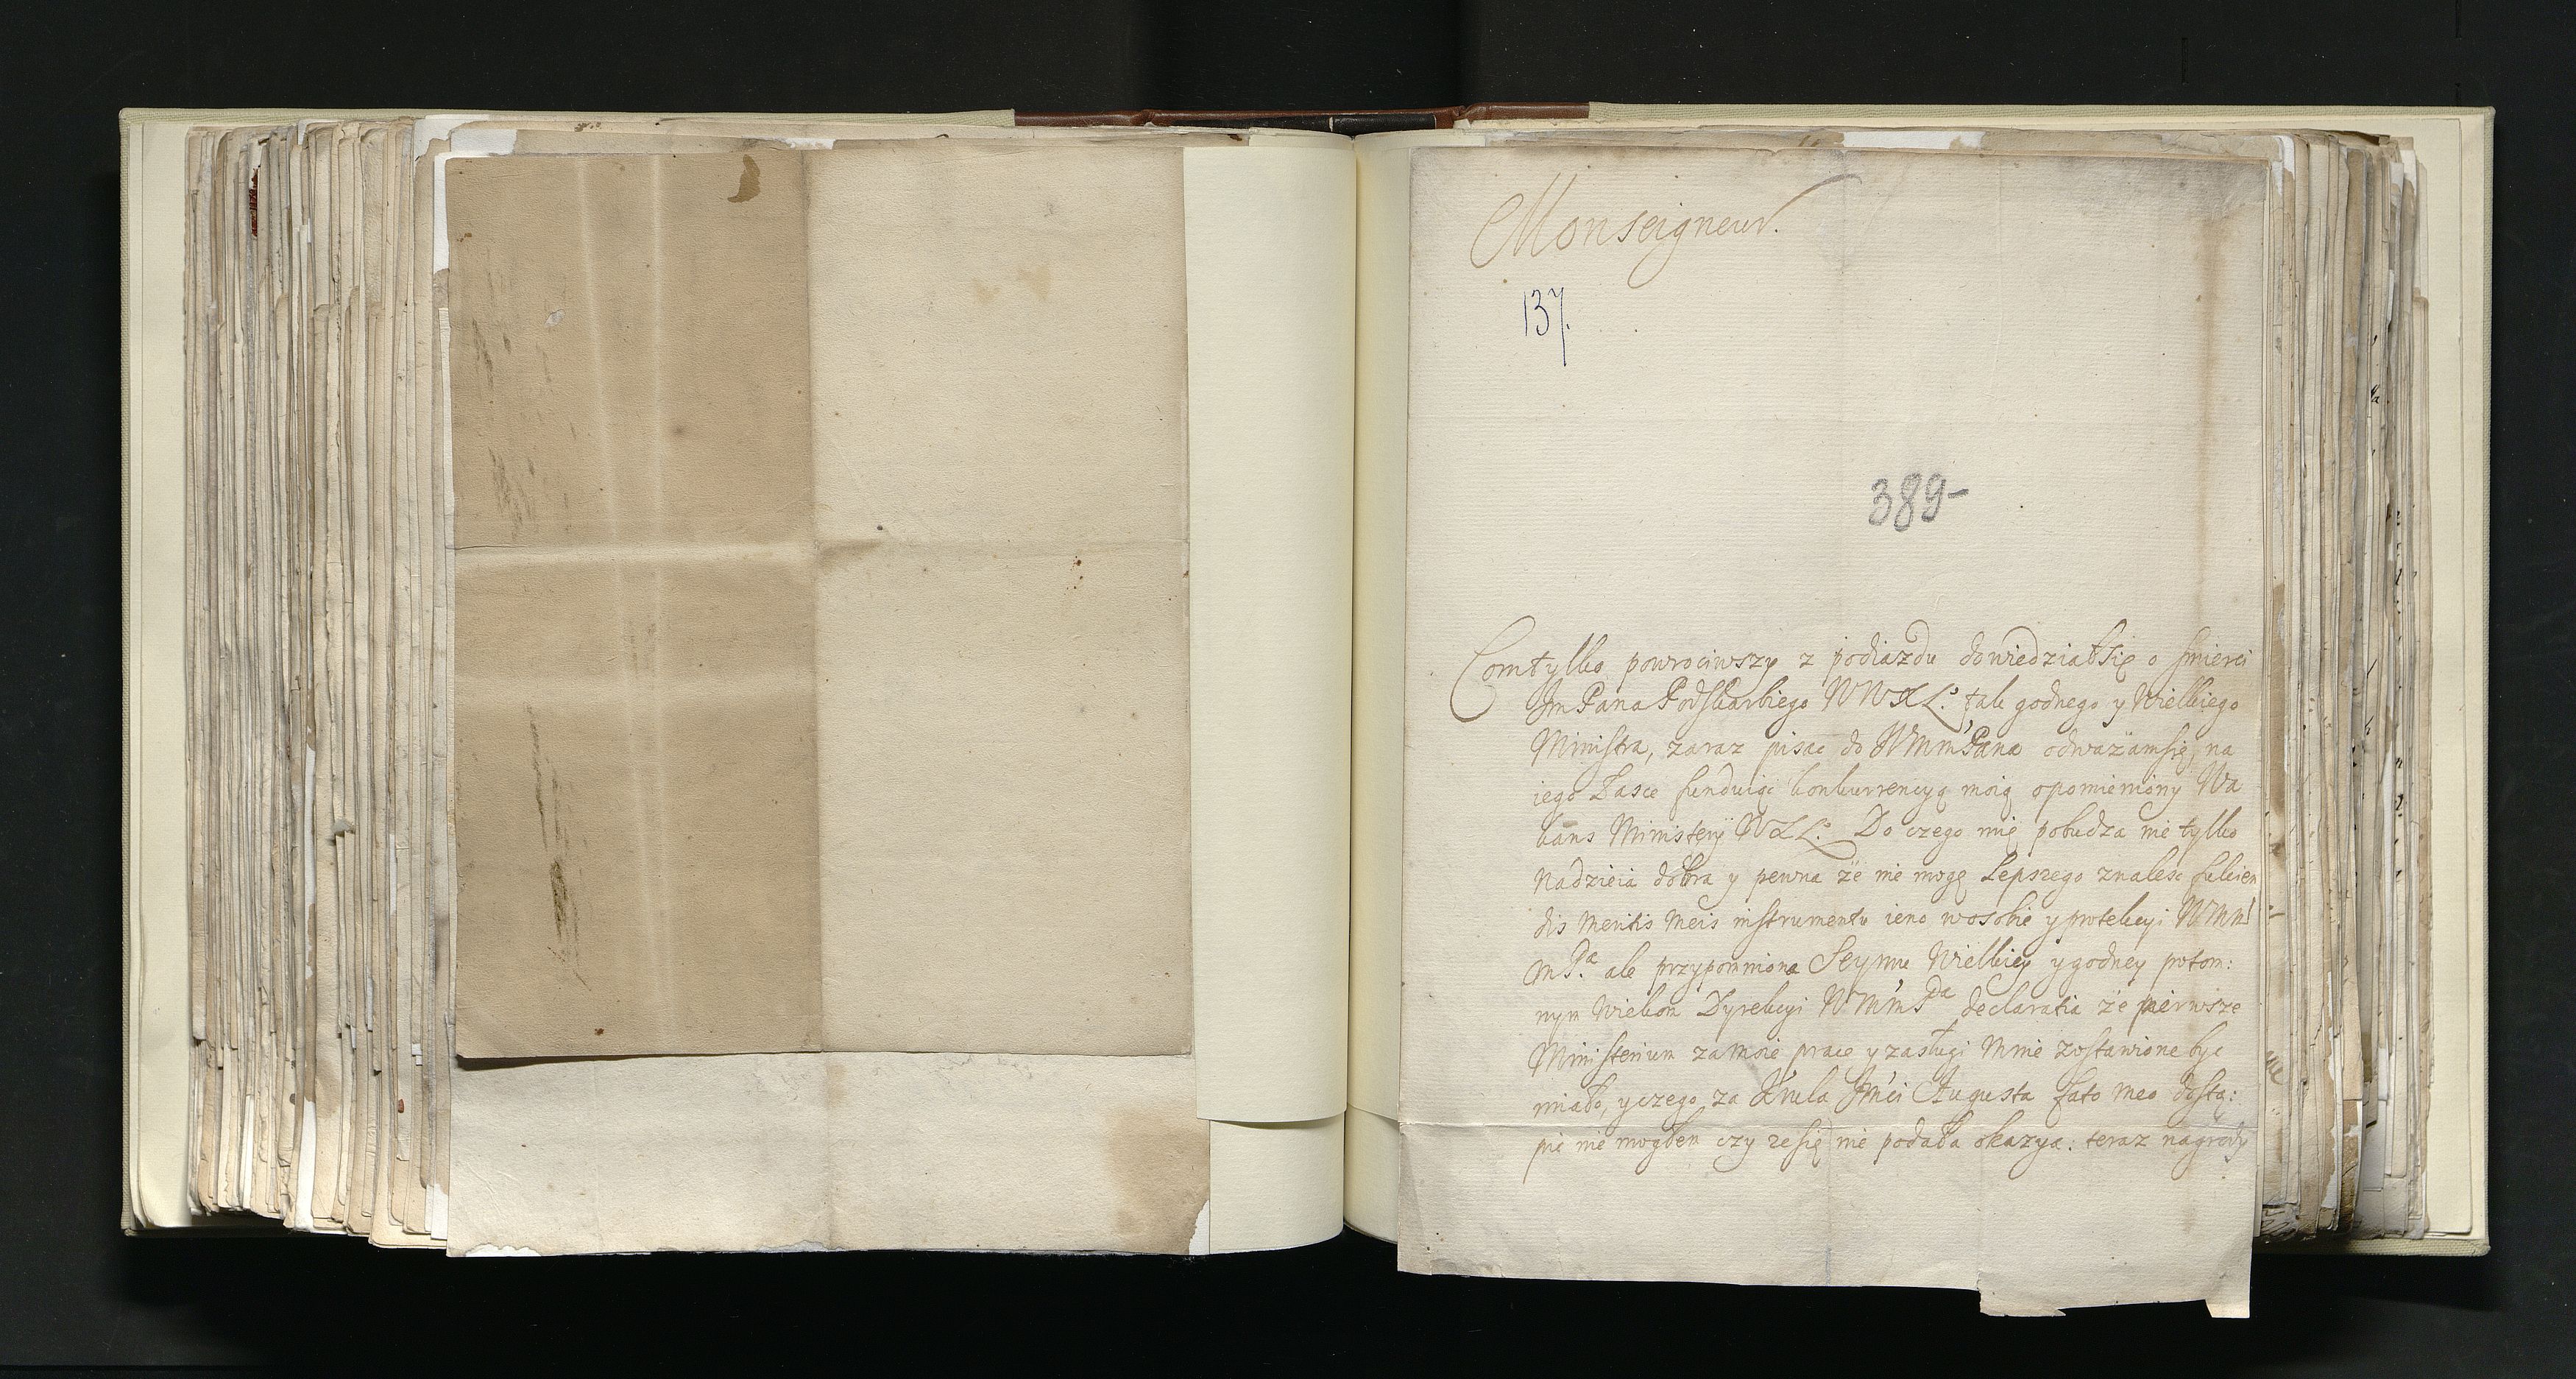 Monseigneur.
137.
389-
Comtylko powrociwszy z podiazdu dowiedziałsię o smierci
Jm Pana Podskarbiego WWXL: tak godnego y Wielkiego
Ministra, zaraz pisac do WMmPana odważamsię, na
iego Łasce funduiąc konkurrencyą moią opomieniony Va
kans Ministerÿ WXL: Do czego mię pobudza nie tylko
Nadzieia dobra y pewna że nie mogę Lepszego znalesc fulcien
dis meritis meis instrumentu ieno wosobie y protekcyi WMM
mPa. ale przypomniona Seymu Wielkiey ygodney potom:
nym wiekom Dyrekcyi WMmPa declaratia że pierwsze
Ministerium zamoie prace y zasługi Mnie zostawione byc
miało, yczego za Krula Jmći Augusta fato meo dostą:
pic nie mogłem czy zesię nie podała okazya: teraz nagrody